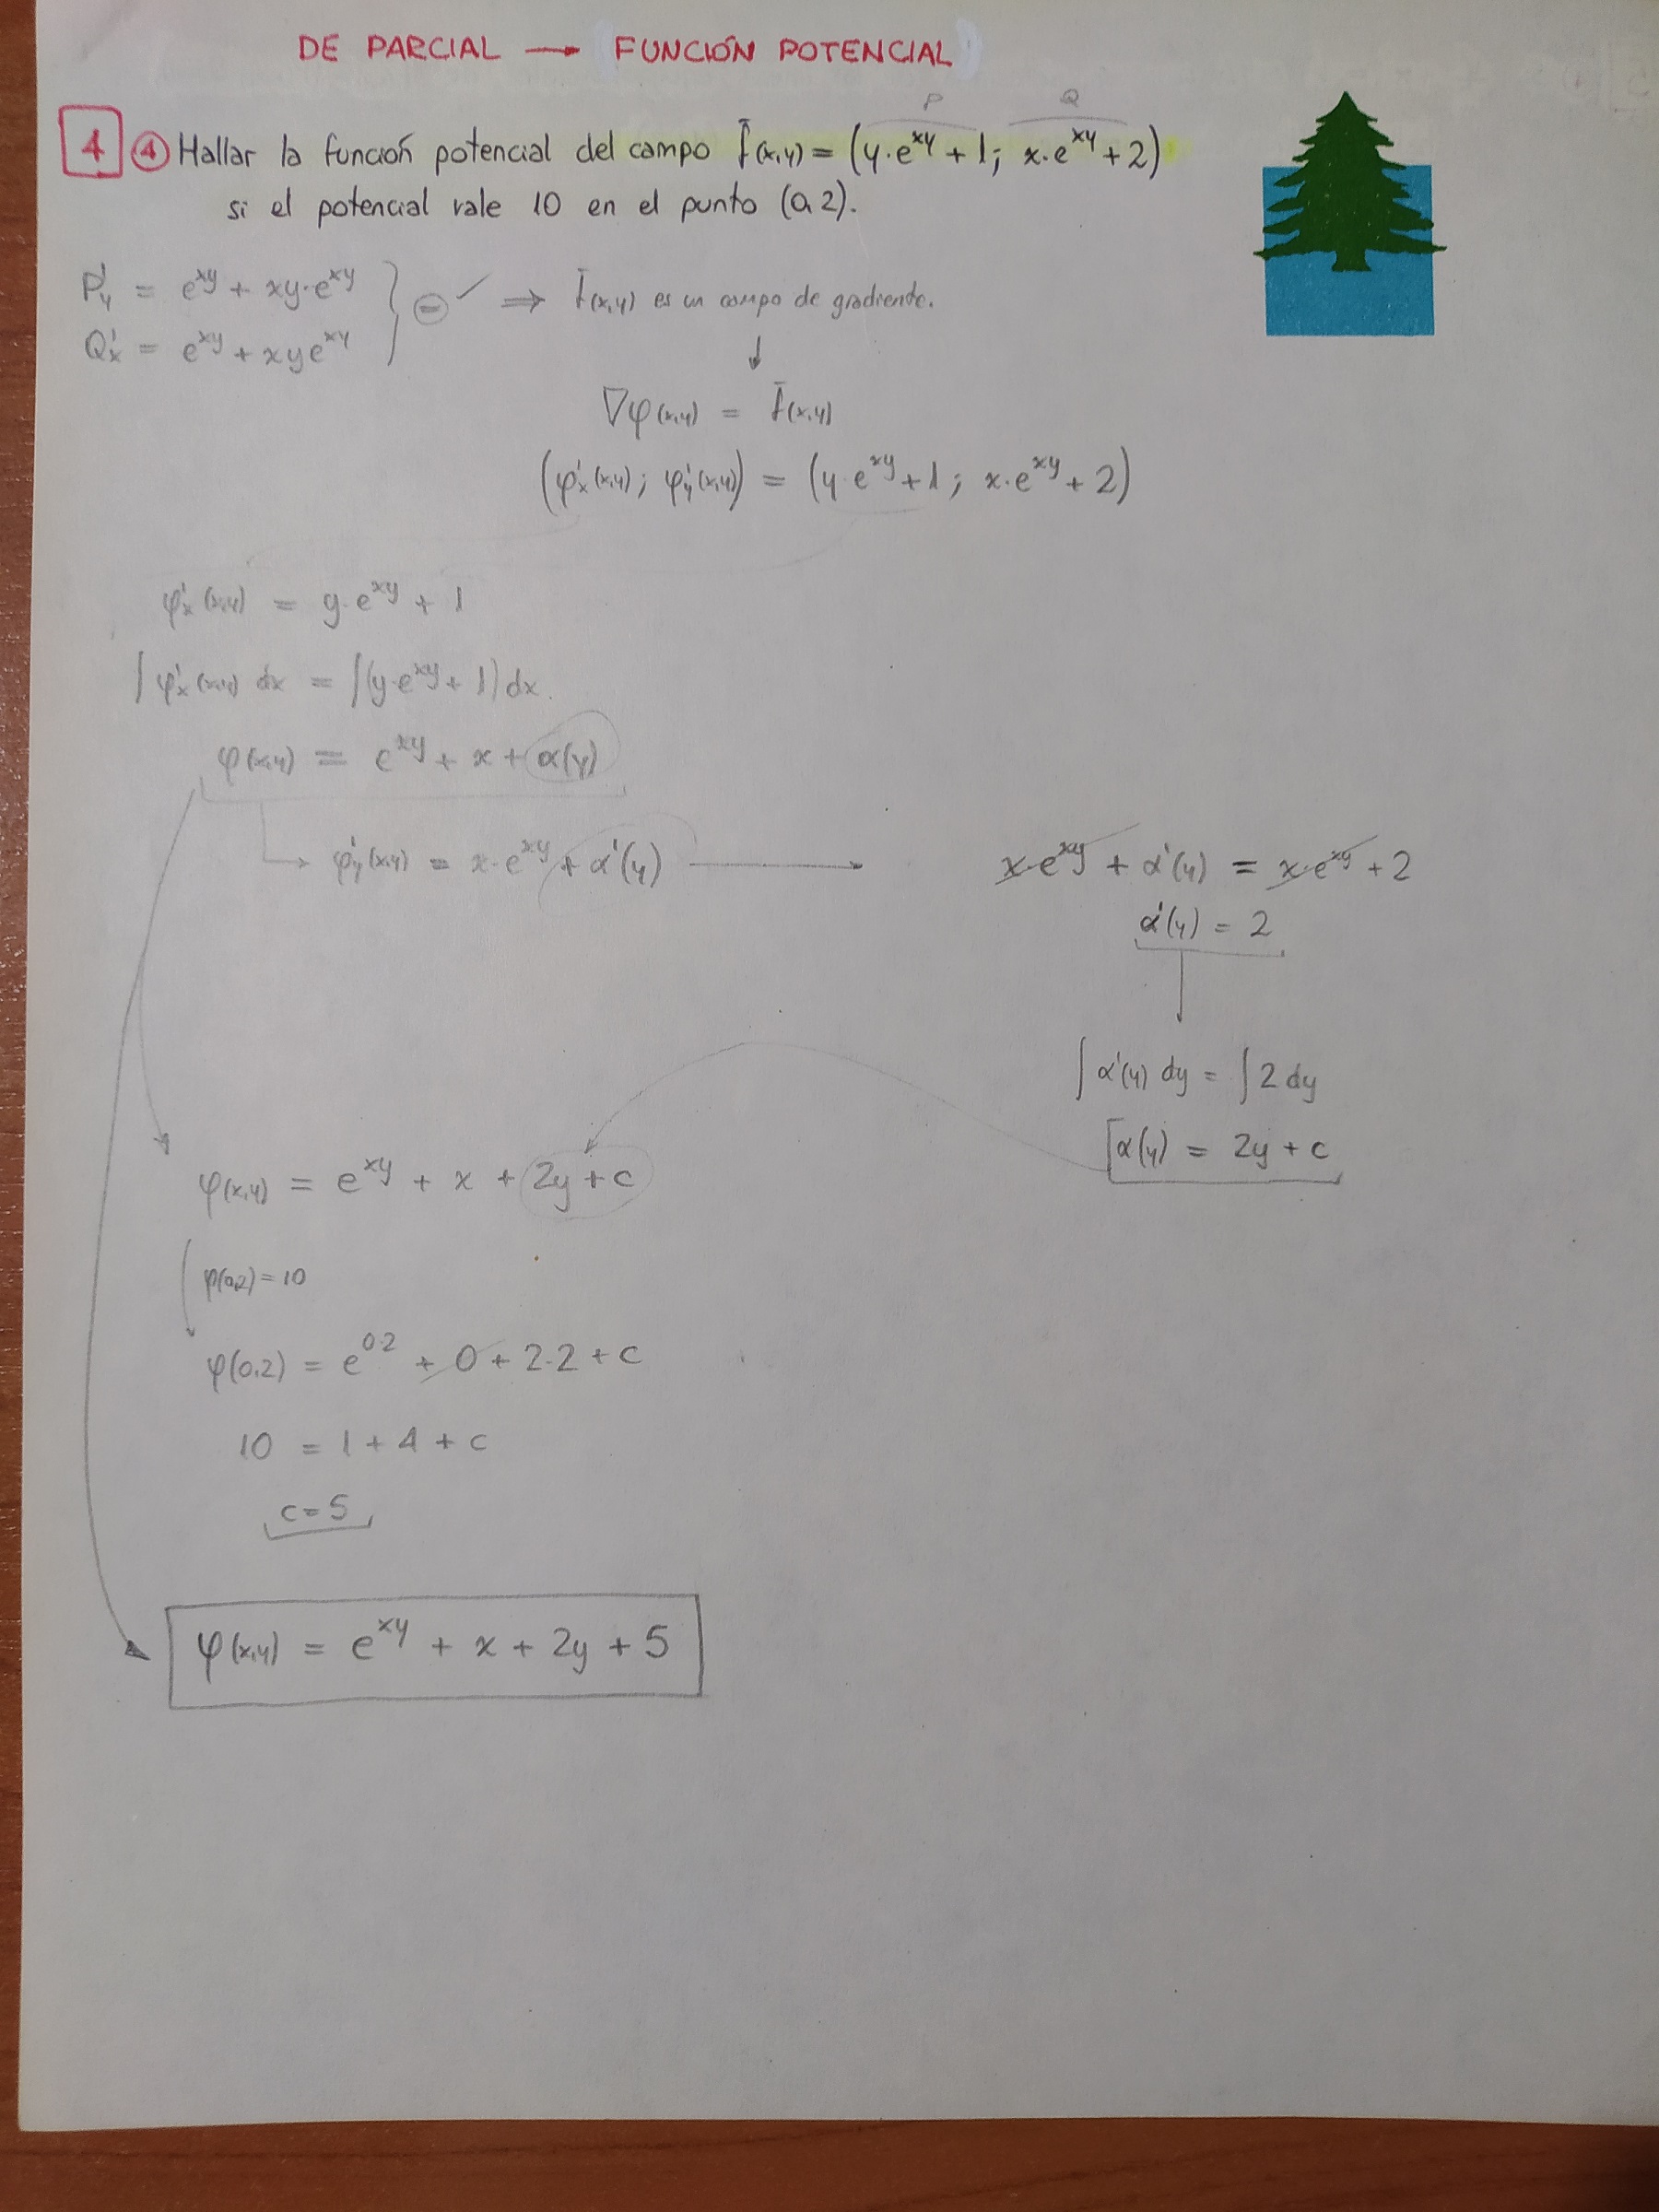 DE PARCIAL → FUNCIÓN POTENCIAL
P Q
4 ④ Hallar la función potencial del campo f̄(x,y) = (y·e^xy + 1; x·e^xy + 2)
si el potencial vale 10 en el punto (0,2).
P'y = e^xy + xy·e^xy
Q'x = e^xy + xye^xy
} ⊜ ✓ ⇒ f̄(x,y) es un campo de gradiente.
↓
∇φ(x,y) = f̄(x,y)
(φ'x(x,y); φ'y(x,y)) = (y·e^xy + 1; x·e^xy + 2)
φ'x(x,y) = y·e^xy + 1
∫φ'x(x,y) dx = ∫(y·e^xy + 1)dx.
φ(x,y) = e^xy + x + α(y)
φ'y(x,y) = x·e^xy + α'(y) → x·e^xy + α'(y) = x·e^xy + 2
α'(y) = 2
∫α'(y) dy = ∫2 dy
α(y) = 2y + c
φ(x,y) = e^xy + x + 2y + c
φ(0,2) = 10
φ(0,2) = e^0·2 + 0 + 2·2 + c
10 = 1 + 4 + c
c = 5
φ(x,y) = e^xy + x + 2y + 5